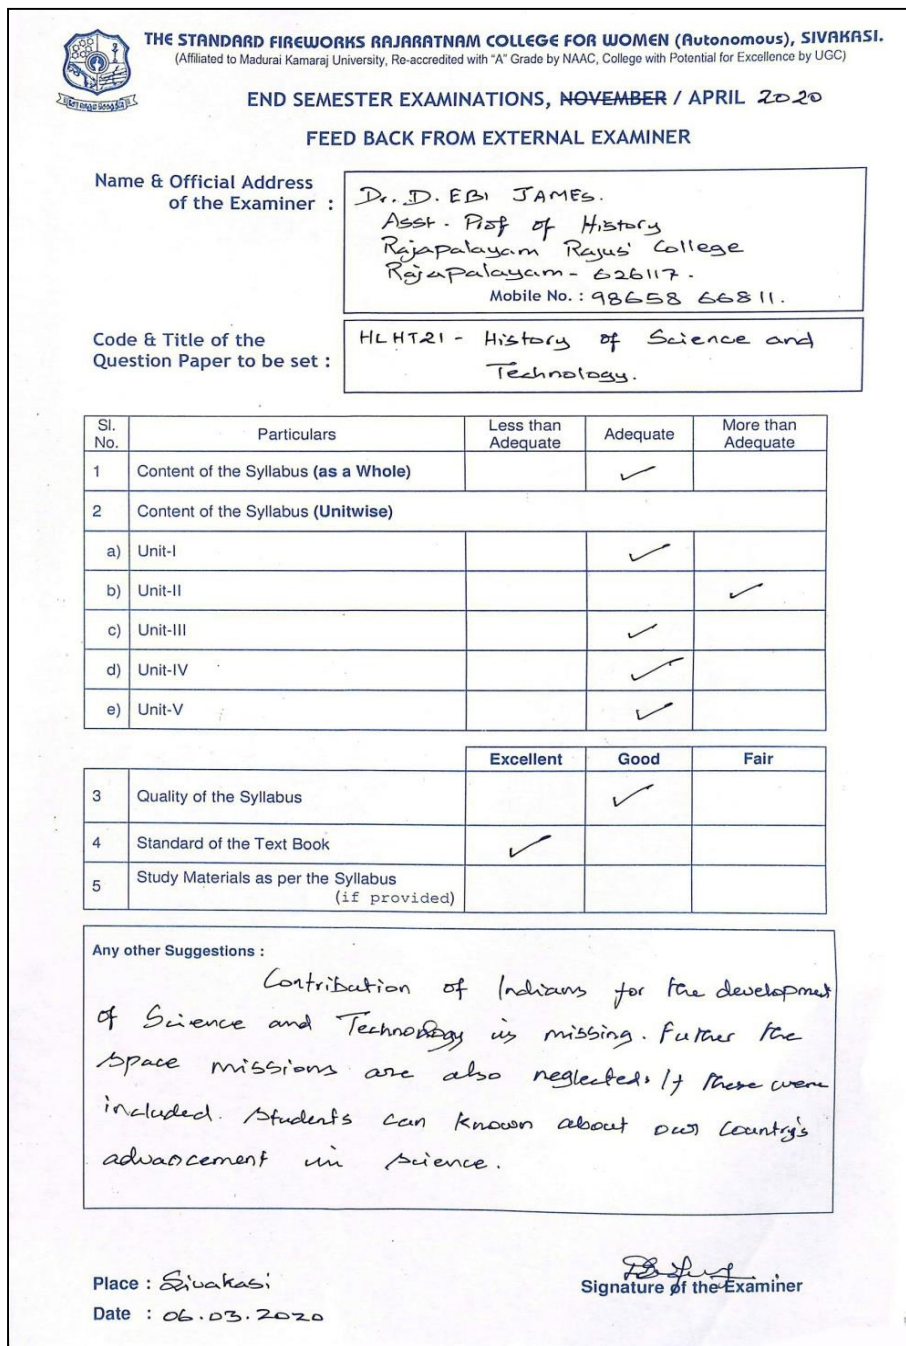 THE STANDARD FIREWORKS RAJARATNAM COLLEGE FOR WOMEN (Autonomous), SIVAKASI.
(Affiliated to Madurai Kamaraj University, Re-accredited with "A" Grade by NAAC, College with Potential for Excellence by UGC)
END SEMESTER EXAMINATIONS, NOVEMBER / APRIL 2020
FEED BACK FROM EXTERNAL EXAMINER
Name & Official Address
of the Examiner :
Dr. D. EBI JAMES.
Asst. Prof of History
Rajapalayam Rajus' College
Rajapalayam - 626117.
Mobile No. : 98658 66811.
Code & Title of the
Question Paper to be set :
HLHT21 - History of Science and
Technology.
Sl. No. Particulars Less than Adequate Adequate More than Adequate
1 Content of the Syllabus (as a Whole) ✓
2 Content of the Syllabus (Unitwise)
a) Unit-I ✓
b) Unit-II ✓
c) Unit-III ✓
d) Unit-IV ✓
e) Unit-V ✓
Excellent Good Fair
3 Quality of the Syllabus ✓
4 Standard of the Text Book ✓
5 Study Materials as per the Syllabus
(if provided)
Any other Suggestions :
Contribution of Indians for the development
of Science and Technology is missing. Futher the
space missions are also neglected. If these were
included. Students can known about our Country's
advancement in science.
Place : Sivakasi
Signature of the Examiner
Date : 06.03.2020